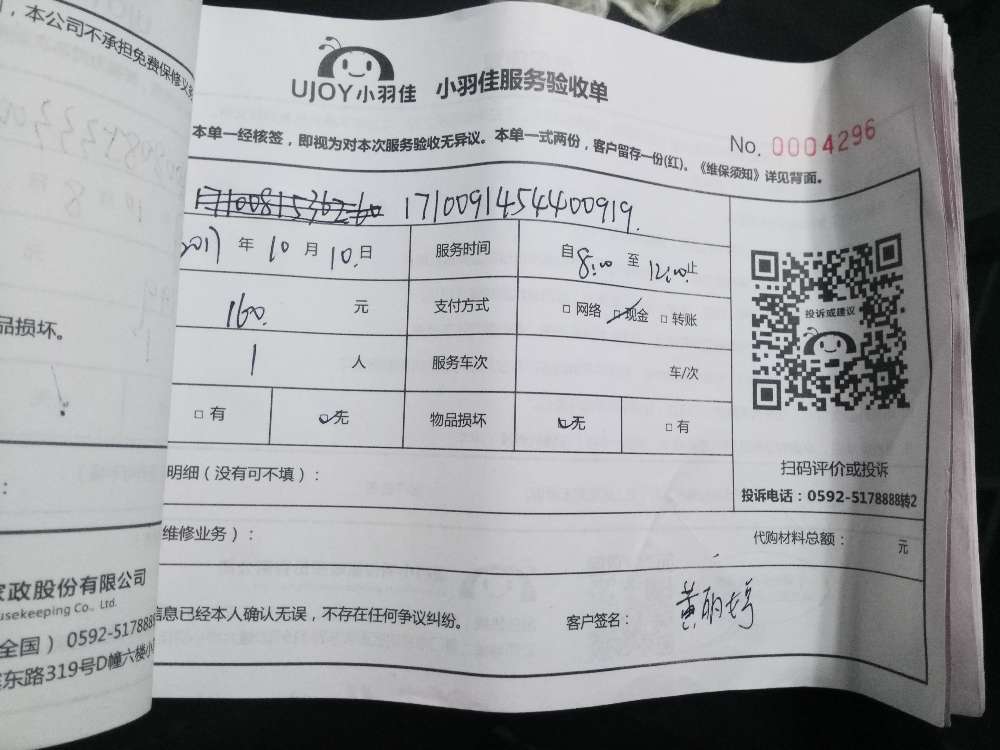 ，本公司不承担免费保修义务
品损坏。
家政股份有限公司
usekeeping Co., Ltd.
全国）0592-5178888
东路319号D幢六楼小
UJOY小羽佳 小羽佳服务验收单
No. 0004296
本单一经核签，即视为对本次服务验收无异议。本单一式两份，客户留存一份(红)。《维保须知》详见背面。
17100815362260 1710091454400919.
2017 年 10 月 10. 日 服务时间 自 8:00 至 12:00 止
160. 元 支付方式 □ 网络 ☑ 现金 □ 转账
1 人 服务车次 车/次
□ 有 ☑ 无 物品损坏 ☑ 无 □ 有
投诉或建议
扫码评价或投诉
投诉电话：0592-5178888转2
明细（没有可不填）：
维修业务）： 代购材料总额： 元
信息已经本人确认无误，不存在任何争议纠纷。 客户签名： 黄丽婷